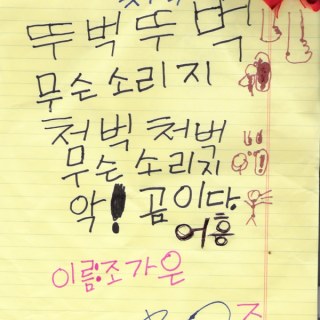 뚜벅뚜벅
무슨소리지
첨벅처벅
무슨소리지
악! 곰이다
어흥
이름:조가은